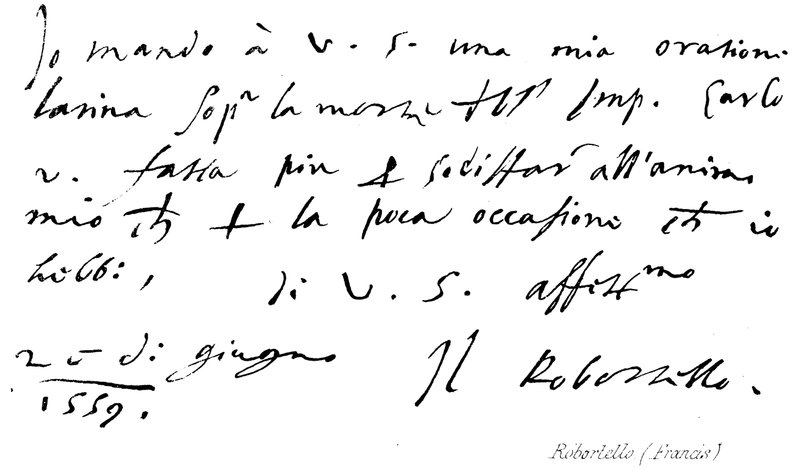 Io mando à V. S. una mia oratione
latina sopr la morte dell' Imp. Carlo
V. fatta piu p sodisfar all'animo
mio ch p la poca occasione ch io
hebbi,
di V. S. affettmo
25 di giugno
Il Robortello.
1559.
Robortello (Francis)